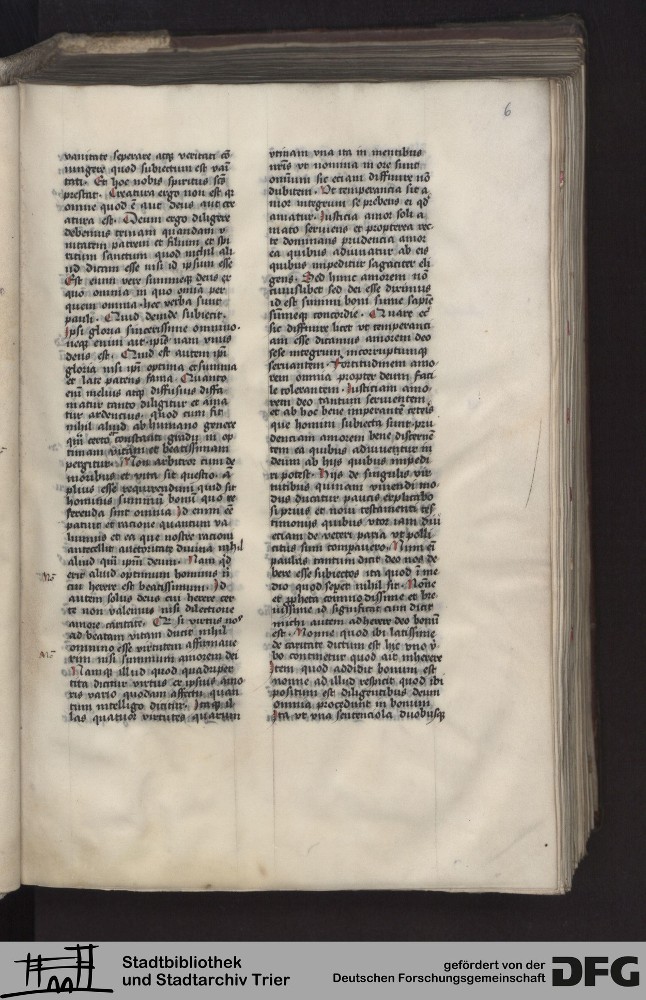 6
vanitate seperare atqꝫ veritati cō
iungere quod subiectum est vani
tati. Et hoc nobis spiritus scūs
prestat. Creatura ergo non est qꝛ
omne quod ē aut deus aut cre
atura est. Deum ergo diligere
debemus trinam quandam v
nitatem patrem et filium et spi
ritum sanctum quod nichil ali
ud dicam esse nisi id ipsum esse
Est enim vere summeqꝫ deus ex
quo omnia in quo omīa per
quem omnia. hec verba sunt
pauli. Quid deinde subiecit.
ipsi gloria sincerissime omnino.
neqꝫ enim ait ipis nam vnus
deus est. Quid est autem ipi
gloria nisi ipī optima et summa
et late patens fama. Quanto
enī melius atqꝫ diffusius diffa
matur tanto diligitur et ama
tur ardencius. quod cum fit
nihil aliud ab humano genere
qm̄ certo constanti gradu in op
timam vitam et beatissimam
pergitur. Non arbitror cum de
moribus et vita sit questio. a
plius esse requirendum quid sit
hominis summū bonū quo re
ferenda sint omnia. Id enim eē
patuit et racione quantum va
luimus et ea que nostre racioni
antecellit auctoritate diuina nihil
aliud qm̄ ipm̄ deum. Nam qd
erit aliud optimum hominis nī
cui herere est beatissimum. Id
autem solus deus cui herere cer
te non valemus nisi dilectione
amore caritate. Qr si virtus nos
ad beatam vitam ducit nihil
omnino esse virtutem affirmaue
rim nisi summum amorem dei
Namqꝫ illud quod quadriper
tita dicitur virtus ex ipsius amo
ris vario quodam affectu quan
tum intelligo dicitur. Itaqꝫ il
las quatuor virtutes quarum
vtinam vna ita in mentibus
nrīs vt nomina in ore sunt
omniū sic eciam diffinire nō
dubitem. Vt temperancia sit a
mor integrum se prebens ei qd
amatur. Iusticia amor soli a
mato seruiens et propterea rec
te dominans prudencia amor
ea quibus adiuuatur ab eis
quibus impeditur sagaciter eli
gens. Sed hunc amorem nō
cuiuslibet sed dei esse diximus
id est summi boni sume sapiē
sumeqꝫ concordie. Quare ec̄
sic diffinire licet vt temperanci
am esse dicamus amorem deo
sese integrum incorruptumqꝫ
seruantem. Fortitudinem amo
rem omnia propter deum faci
le tolerantem. Iusticiam amo
rem deo tantum seruientem
et ab hoc bene imperantē ceteris
que homini subiecta sunt. pru
denciam amorem bene discernē
tem ea quibus adiuuentur in
deum ab hijs quibus impedi
ri potest. Hijs de singulis vir
tutibus quinam viuendi mo
dus ducatur paucis explicabo
si prius et noui testamenti tes
timonijs quibus vtor iam diu
eciam de veteri paria vt polli
citus sum comparauero. Num ei
paulus tantum dicit deo nos de
bere esse subiectos ita quod ī me
dio quod sepet nihil sit. Nōne
et ꝓpheta commodissime et bre
uissime id significat cum dicit
michi autem adherere deo bonū
est. Nonne quod ibi latissime
de caritate dictum est hic vno v̄
bo continetur quod ait inherere
Item quod addidit bonum est
nonne ad illud respicit quod ibi
positum est diligentibus deum
omnia procedunt in bonum
Ita vt vna sentenciola duobusqꝫ
Stadtbibliothek
und Stadtarchiv Trier
gefördert von der
Deutschen Forschungsgemeinschaft
DFG